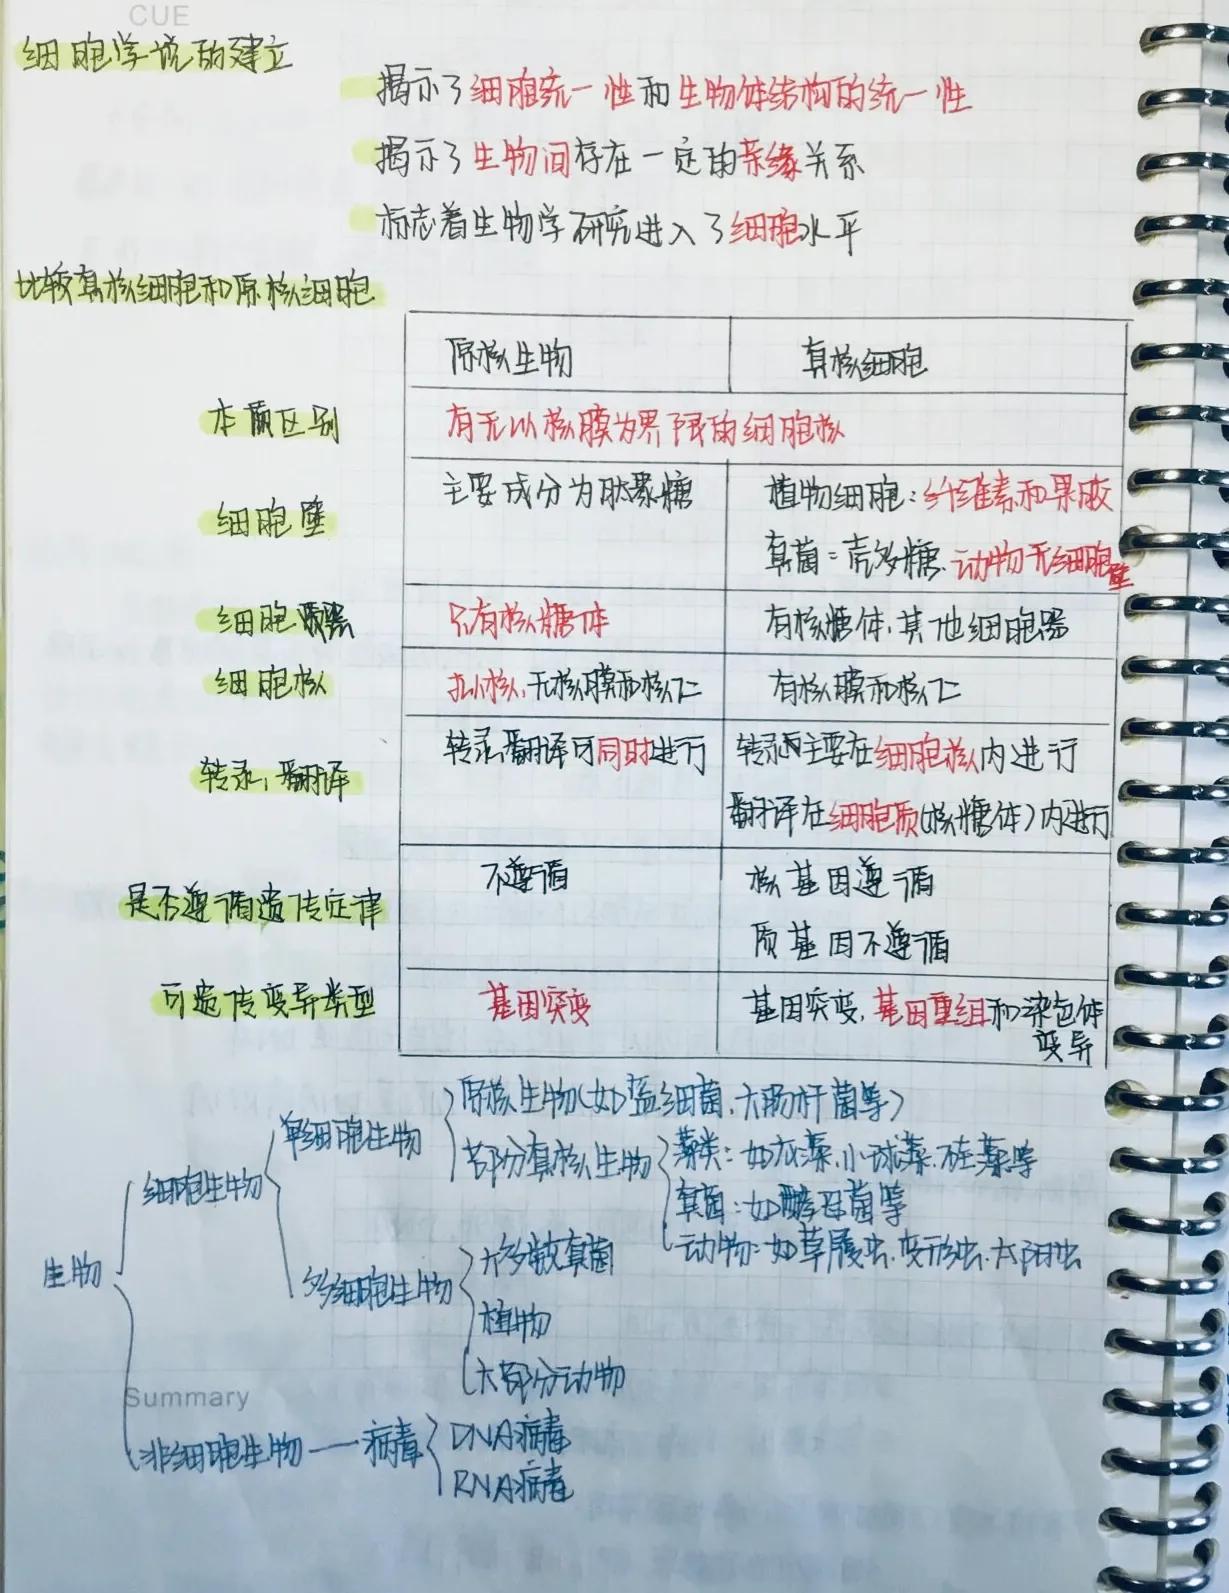 CUE
细胞学说的建立
揭示了细胞统一性和生物体结构的统一性
揭示了生物间存在一定的亲缘关系
标志着生物学研究进入了细胞水平
比较真核细胞和原核细胞
原核生物 真核细胞
本质区别 有无以核膜为界限的细胞核
细胞壁 主要成分为肽聚糖 植物细胞:纤维素和果胶
真菌:壳多糖.动物无细胞壁
细胞器 只有核糖体 有核糖体,其他细胞器
细胞核 拟核,无核膜和核仁 有核膜和核仁
转录、翻译 转录,翻译可同时进行 转录主要在细胞核内进行
翻译在细胞质(核糖体)内进行
是否遵循遗传定律 不遵循 核基因遵循
质基因不遵循
可遗传变异类型 基因突变 基因突变,基因重组和染色体
变异
原核生物(如蓝细菌、大肠杆菌等)
单细胞生物
部分真核生物 藻类:如衣藻、小球藻、硅藻等
细胞生物
真菌:如酵母菌等
动物:如草履虫、变形虫、太阳虫
大多数真菌
生物
多细胞生物
植物
大部分动物
Summary
非细胞生物——病毒 DNA病毒
RNA病毒